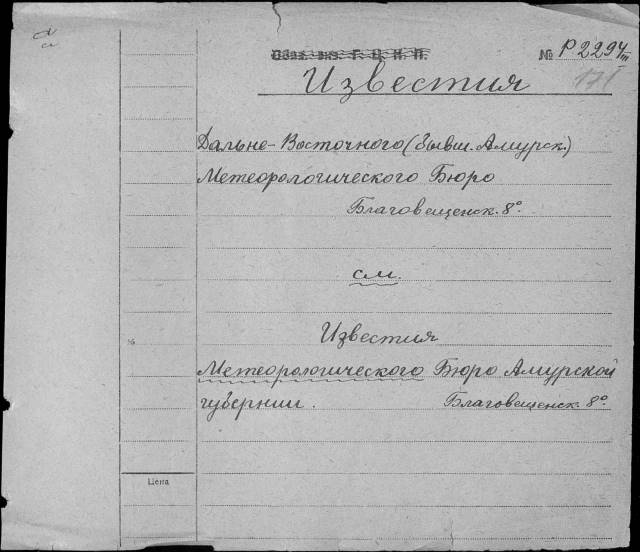 Обяз. экз. Г. Ц. К. П.
№ Р 2294/III
171
Известия
Дальне-Восточного (бывш. Амурск.)
Метеорологического Бюро
Благовещенск. 8°.
см.
Известия
№
Метеорологического Бюро Амурской
губернии. Благовещенск. 8°.
Цена